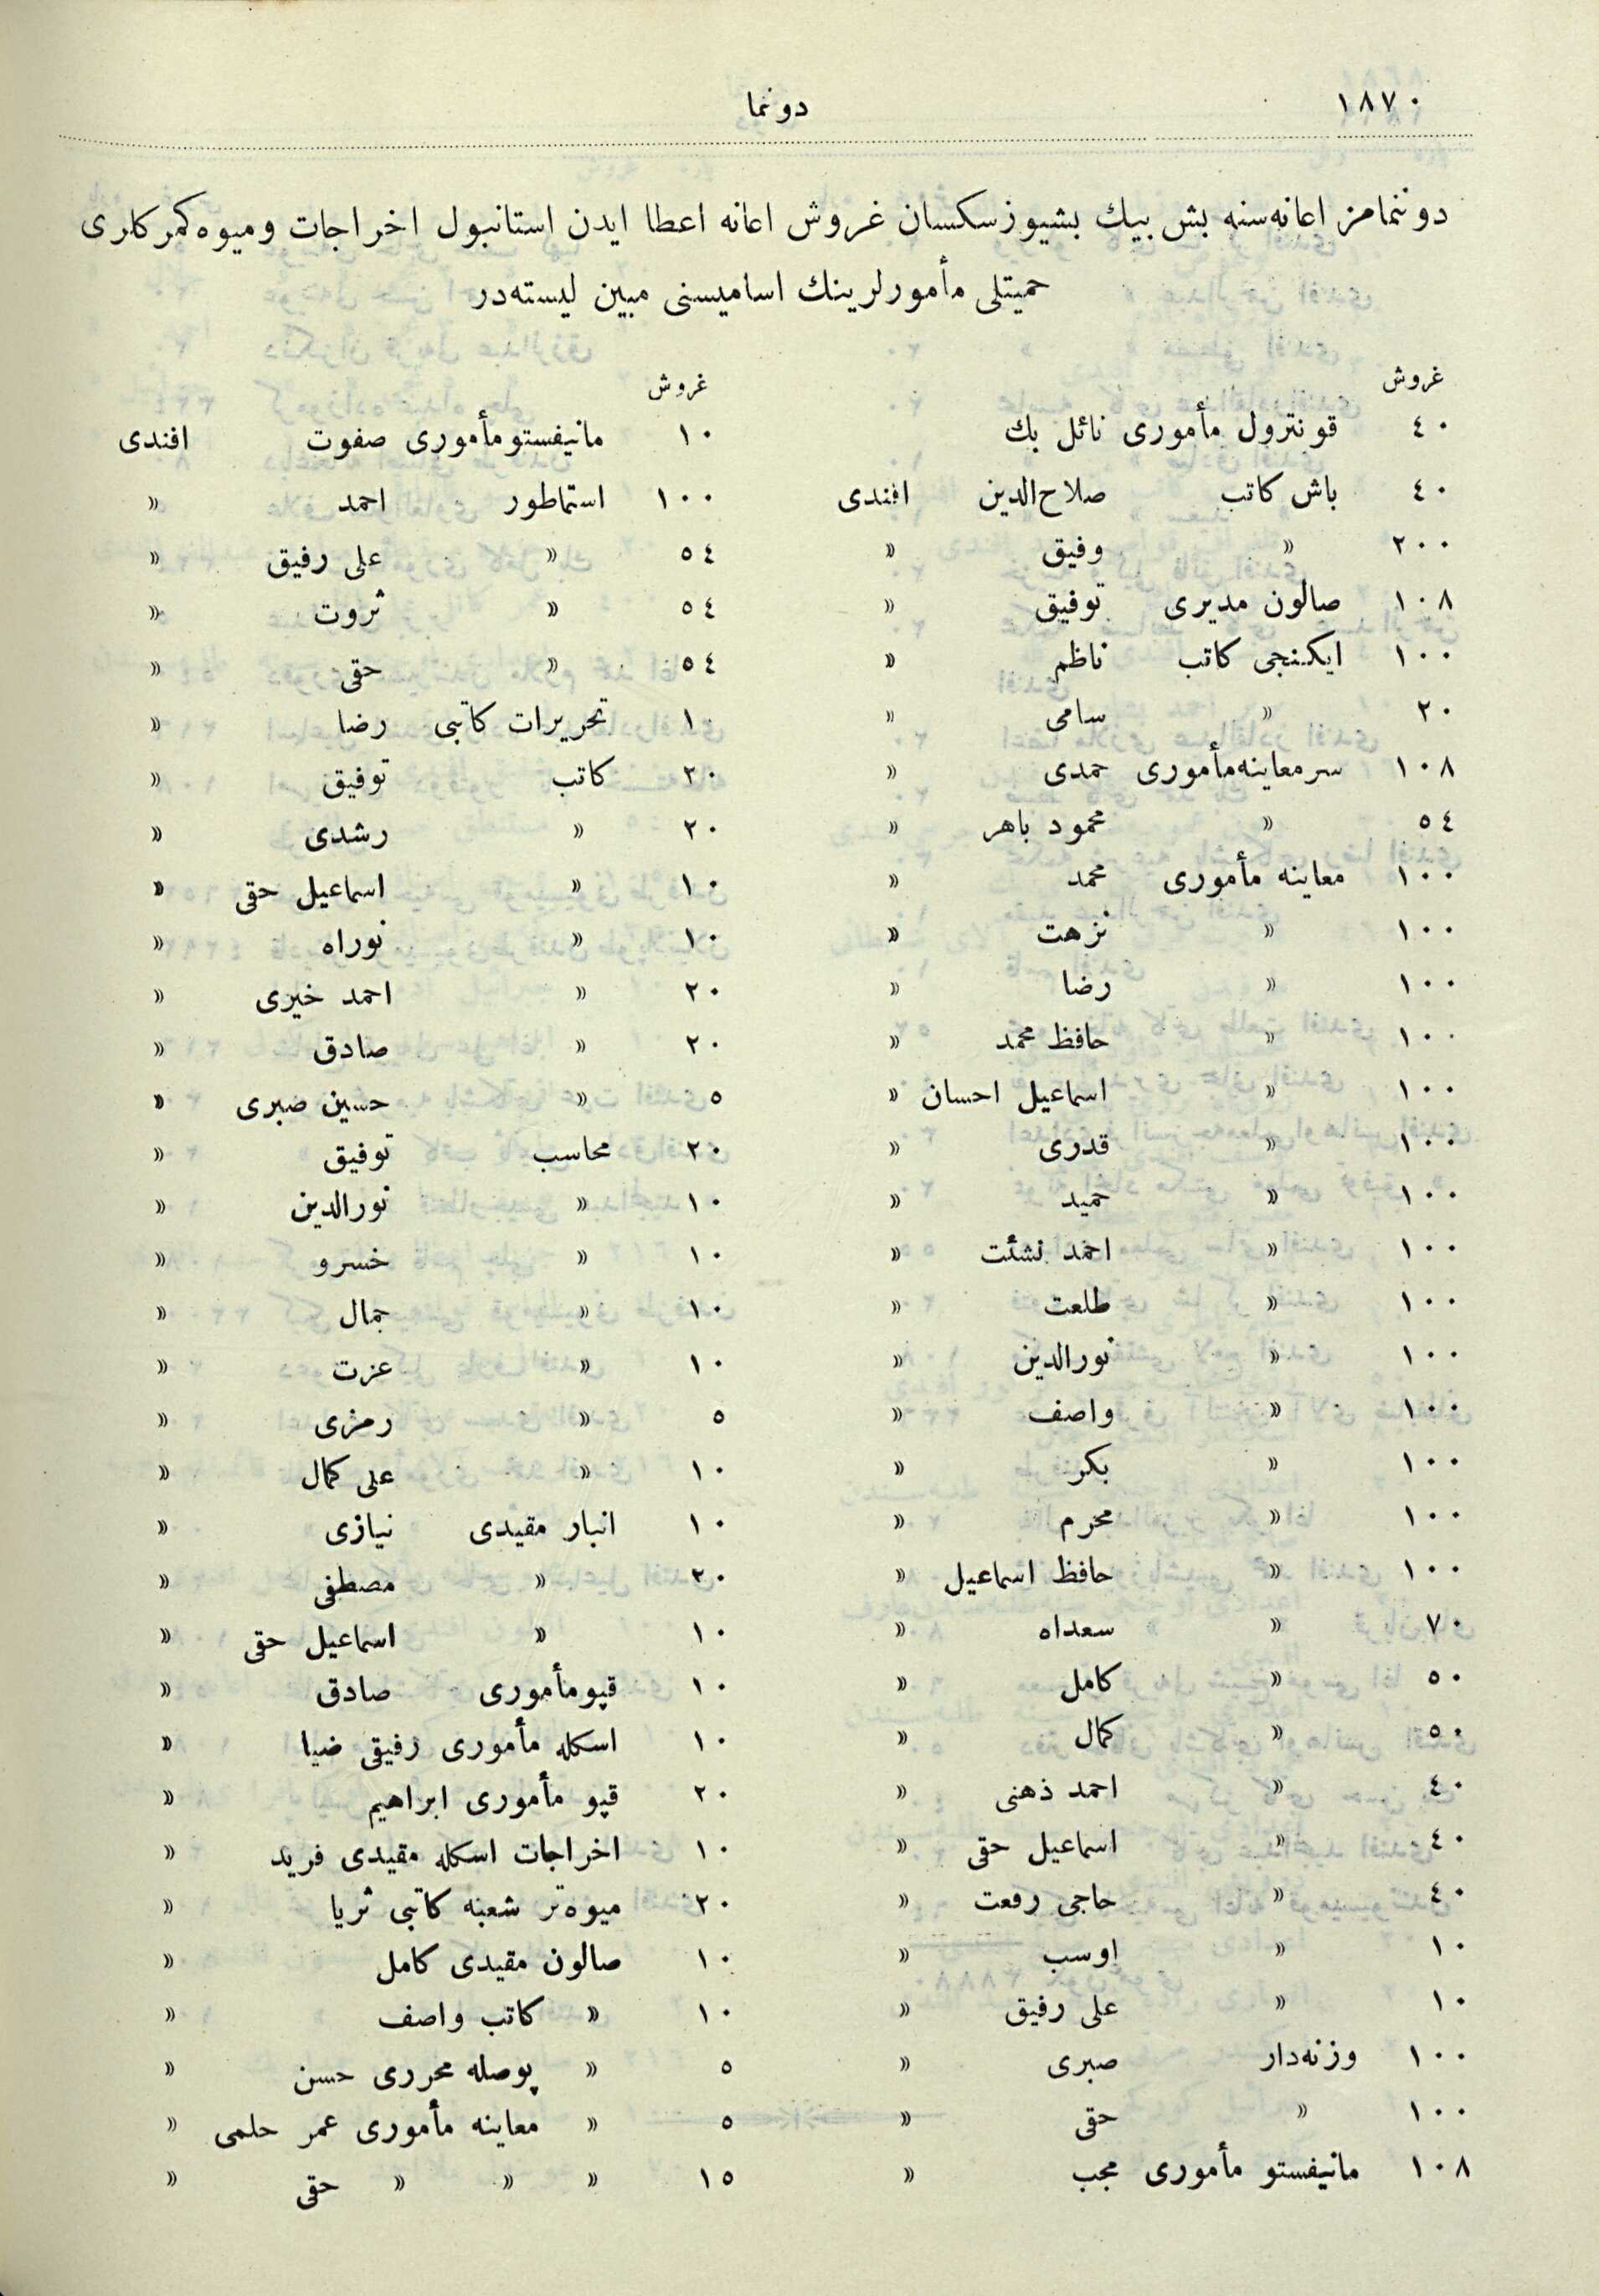 ١٨٧٠
دونما
دوننمامز اعانه‌سنه بش بيك بشيوزسكسان غروش اعانه اعطا ايدن استانبول اخراجات وميوه كمركلرى
حميتلى مأمورلرينك اساميسنى مبين ليسته‌در
غروش
٤٠ قونترول مأمورى نائل بك
٤٠ باش كاتب صلاح‌الدين افندى
٢٠٠ » وفيق »
١٠٨ صالون مديرى توفيق »
١٠٠ ايكنجى كاتب ناظم »
٢٠ » سامى »
١٠٨ سرمعاينه‌مأمورى حمدى »
٥٤ » محمود باهر »
١٠٠ معاينه مأمورى محمد »
١٠٠ » نزهت »
١٠٠ » رضا »
١٠٠ » حافظ محمد »
١٠٠ » اسماعيل احسان »
١٠٠ » قدرى »
١٠٠ » حميد »
١٠٠ » احمد نشئت »
١٠٠ » طلعت »
١٠٠ » نورالدين »
١٠٠ » واصف »
١٠٠ » بكر »
١٠٠ » محرم »
١٠٠ » حافظ اسماعيل »
٧٠ » سعداه »
٥٠ » كامل »
٥٠ » كمال »
٤٠ » احمد ذهنى »
٤٠ » اسماعيل حقى »
٤٠ » حاجى رفعت »
١٠ » اوسب »
١٠ » على رفيق »
١٠٠ وزنه‌دار صبرى »
١٠٠ » حقى »
١٠٨ مانيفستو مأمورى محب »
غروش
١٠ مانيفستومأمورى صفوت افندى
١٠٠ استماطور احمد »
٥٤ » على رفيق »
٥٤ » ثروت »
٥٤ » حقى »
١٠ تحريرات كاتبى رضا »
٢٠ كاتب توفيق »
٢٠ » رشدى »
١٠ » اسماعيل حقى »
١٠ » نوراه »
٢٠ » احمد خيرى »
٢٠ » صادق »
٥ » حسين صبرى »
٢٠ محاسب توفيق »
١٠ » نورالدين »
١٠ » خسرو »
١٠ » جمال »
١٠ » عزت »
٥ » رمزى »
١٠ » على كمال »
١٠ انبار مقيدى نيازى »
٢٠ » مصطفى »
١٠ » اسماعيل حقى »
١٠ قپومأمورى صادق »
١٠ اسكله مأمورى رفيقى ضيا »
٢٠ قپو مأمورى ابراهيم »
١٠ اخراجات اسكله مقيدى فريد »
٢٠ ميوه‌تر شعبه كاتبى ثريا »
١٠ صالون مقيدى كامل »
١٠ » كاتب واصف »
٥ » پوصله محررى حسن »
٥ » معاينه مأمورى عمر حلمى »
١٥ » » » حقى »